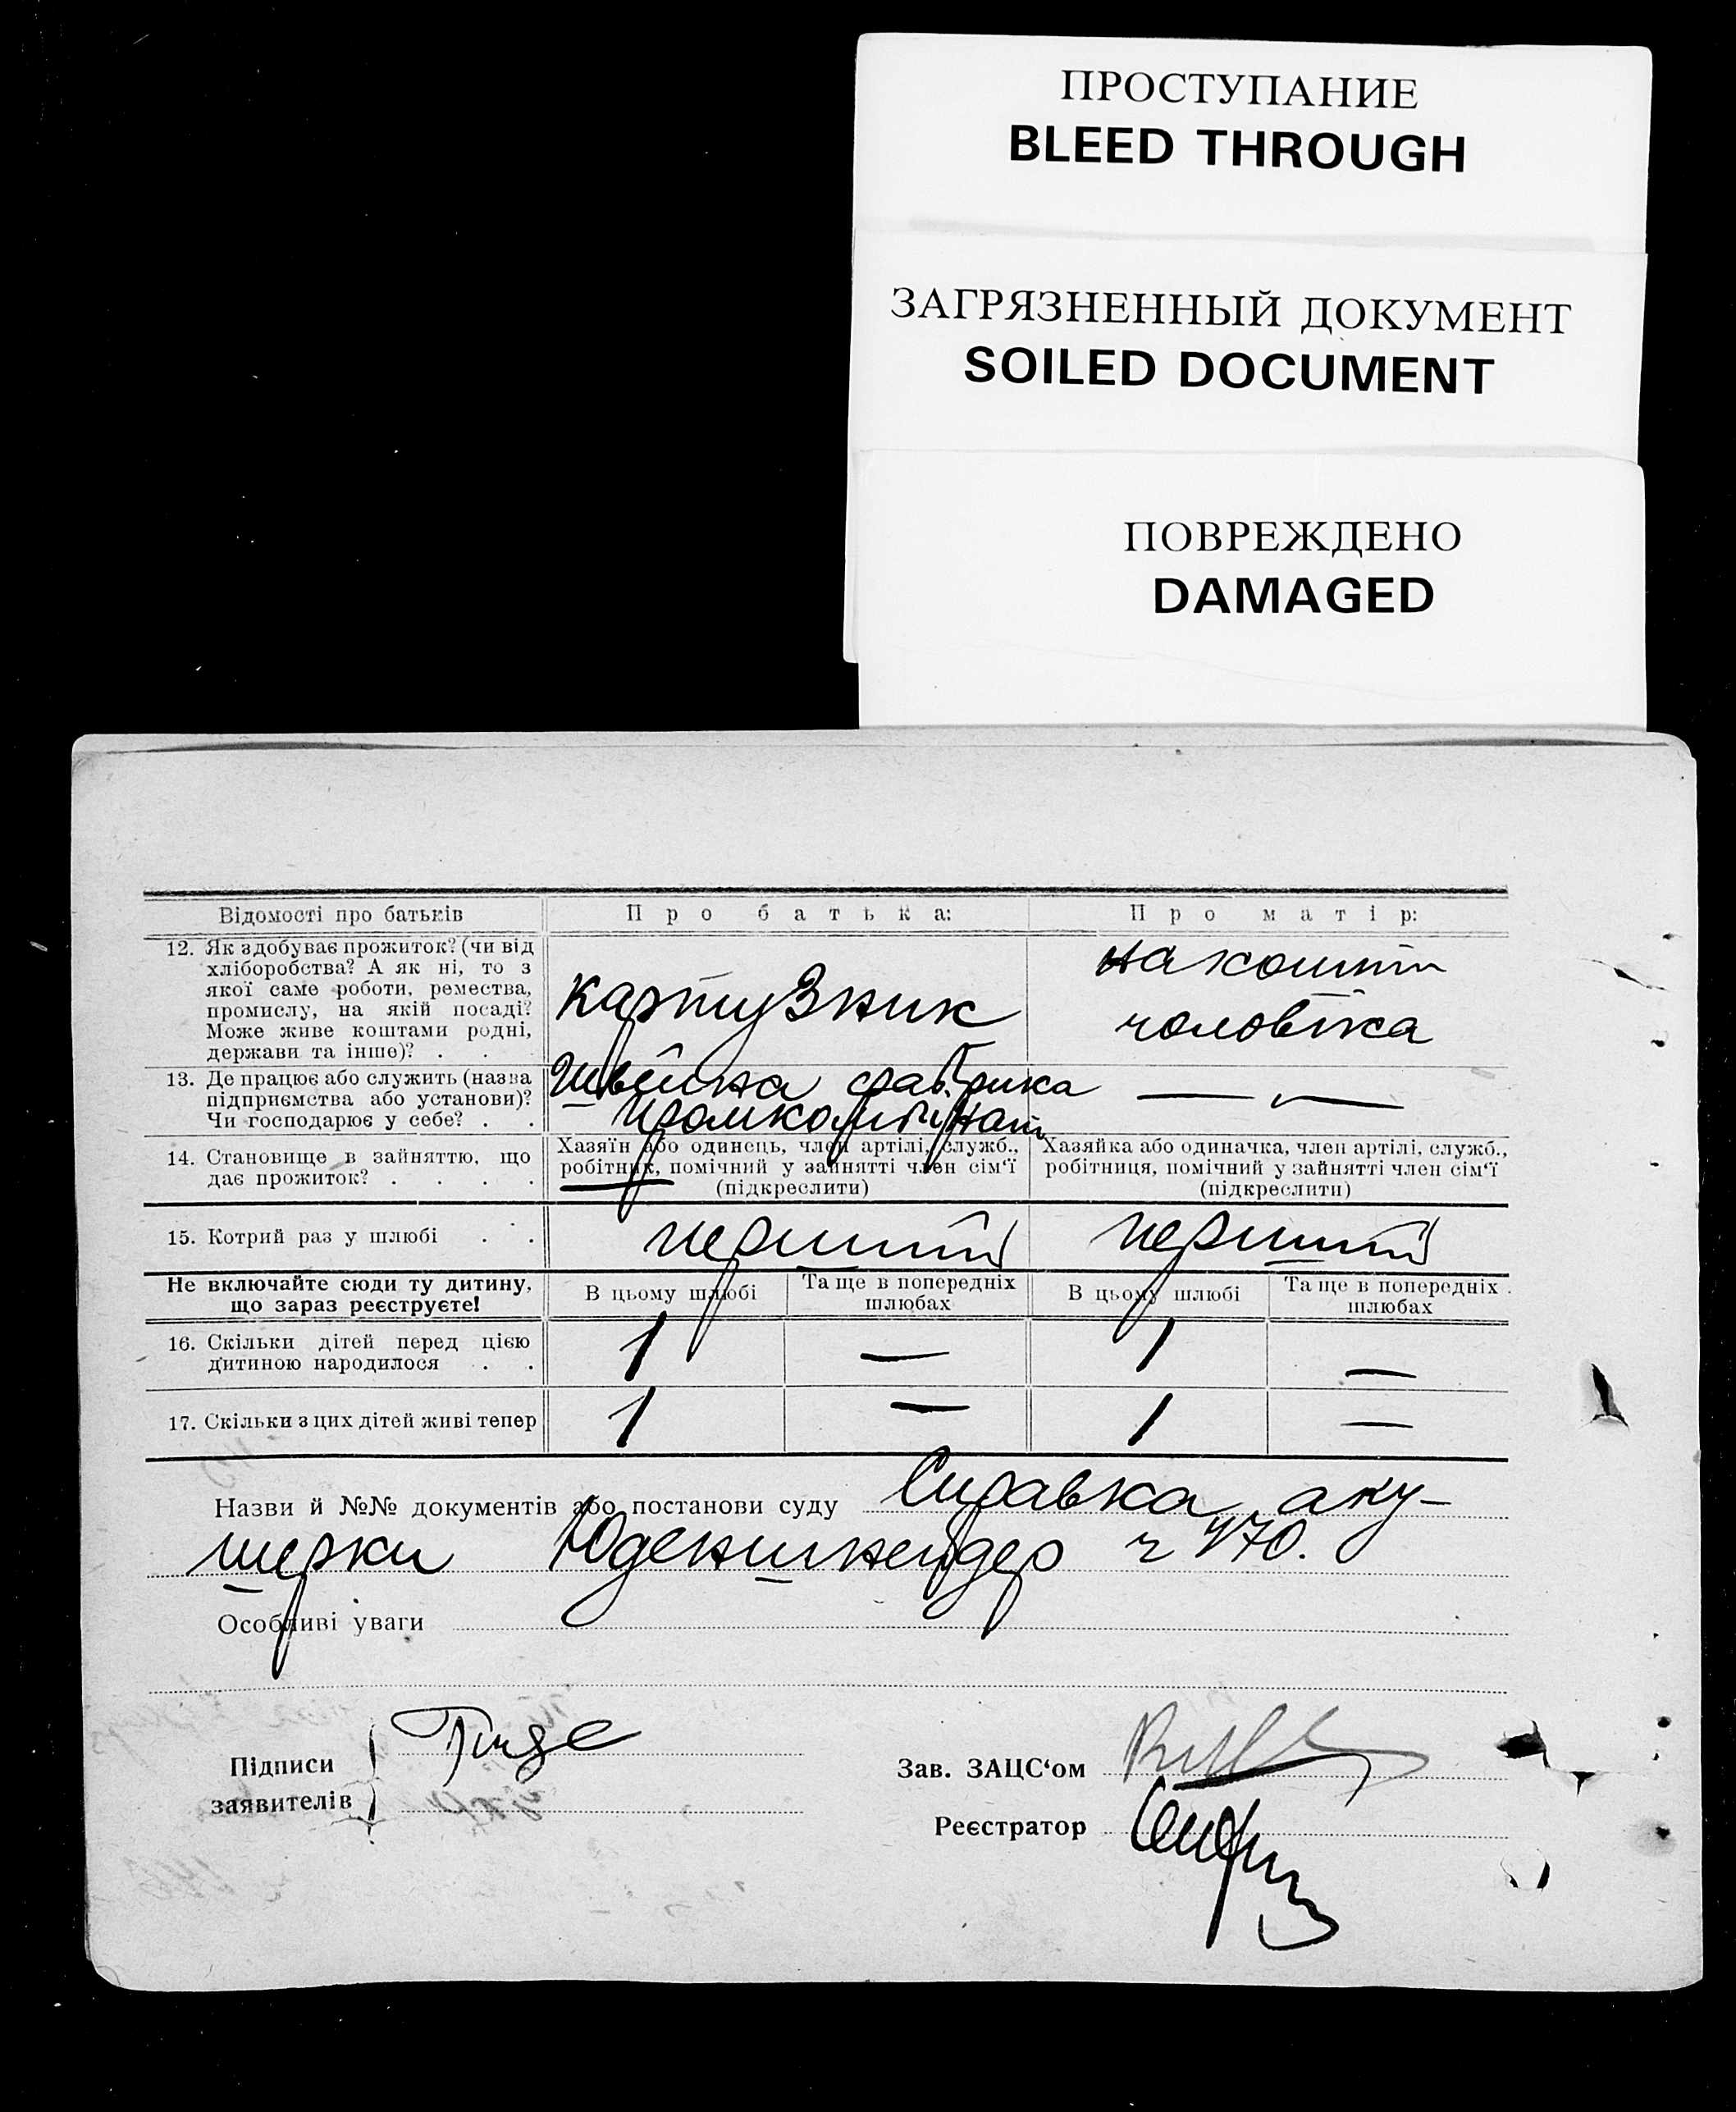 ПРОСТУПАНИЕ
BLEED THROUGH
ЗАГРЯЗНЕННЫЙ ДОКУМЕНТ
SOILED DOCUMENT
ПОВРЕЖДЕНО
DAMAGED
Відомості про батьків
Про батька:
Про матір:
12. Як здобуває прожиток? (чи від
хліборобства? А як ні, то з
якої саме роботи, ремества,
промислу, на якій посаді?
Може живе коштами родні,
держави та інше)? . . .
картузник
на кошти
чоловіка
13. Де працює або служить (назва
підприємства або установи)?
Чи господарює у себе? . .
Швейна фабрика
промкомбінат
— —
14. Становище в зайняттю, що
дає прожиток? . . . .
Хазяїн або одинець, член артілі, служб.,
робітник, помічний у занятті член сім‘ї
(підкреслити)
Хазяйка або одиначка, член артілі, служб.,
робітниця, помічний у занятті член сім‘ї
(підкреслити)
15. Котрий раз у шлюбі . .
перший
перший
Не включайте сюди ту дитину,
що зараз реєструєте!
В цьому шлюбі
Та ще в попередніх
шлюбах
В цьому шлюбі
Та ще в попередніх
шлюбах
16. Скільки дітей перед цією
дитиною народилося . .
1 — 1 —
17. Скільки з цих дітей живі тепер
1 — 1 —
Назви й №№ документів або постанови суду Справка аку-
шерки Юденшнейдер ч 470.
Особливі уваги
Підписи
заявителів
Зав. ЗАЦС‘ом
Реєстратор